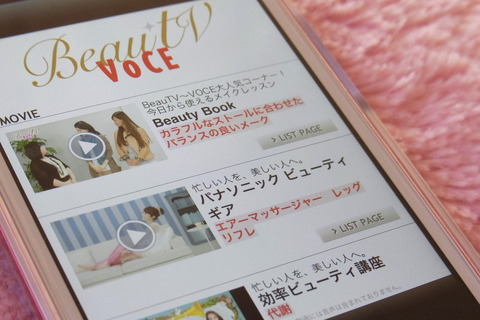 BeauTV
VOCE
MOVIE
BeauTV～VOCE大人気コーナー！
今日から使えるメイクレッスン
Beauty Book
カラフルなストールに合わせた
バランスの良いメーク
> LIST PAGE
忙しい人を、美しい人へ。
パナソニック ビューティ
ギア
エアーマッサージャー　レッグ
リフレ
> LIST PAGE
忙しい人を、美しい人へ。
効率ビューティ講座
代謝